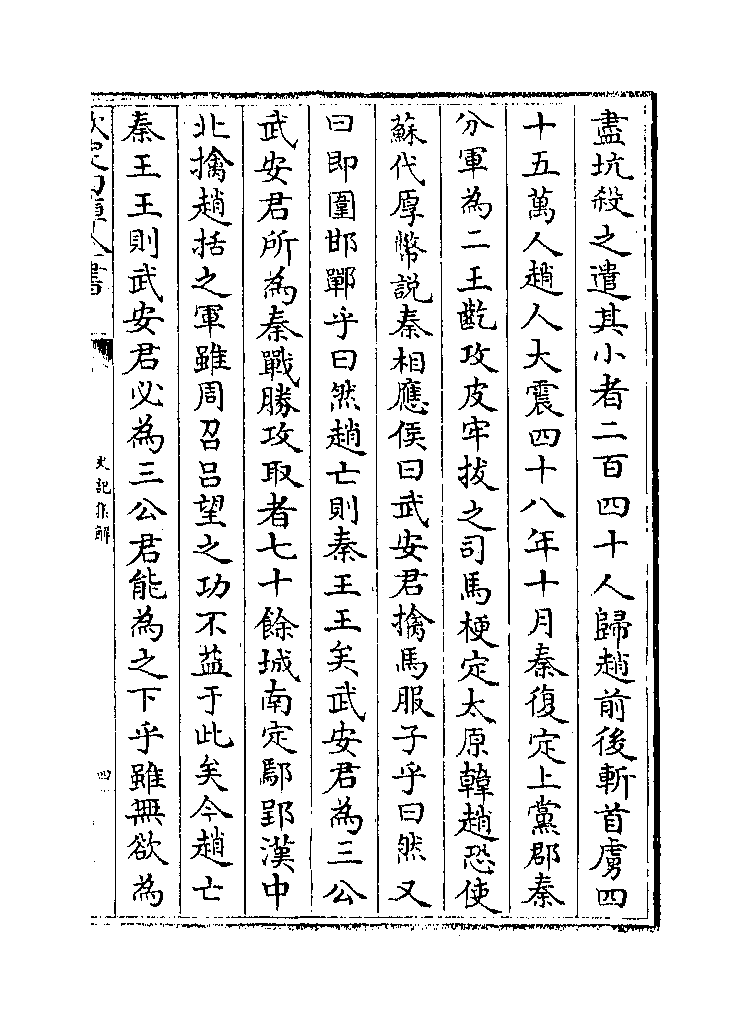 盡坑殺之遣其小者二百四十人歸趙前後斬首虜四
十五萬人趙人大震四十八年十月秦復定上黨郡秦
分軍為二王齕攻皮牢拔之司馬梗定太原韓趙恐使
蘇代厚幣說秦相應侯曰武安君擒馬服子乎曰然又
曰即圍邯鄲乎曰然趙亡則秦王王矣武安君為三公
武安君所為秦戰勝攻取者七十餘城南定鄢郢漢中
北擒趙括之軍雖周召呂望之功不益于此矣今趙亡
秦王王則武安君必為三公君能為之下乎雖無欲為
欽定四庫全書
史記集解
四